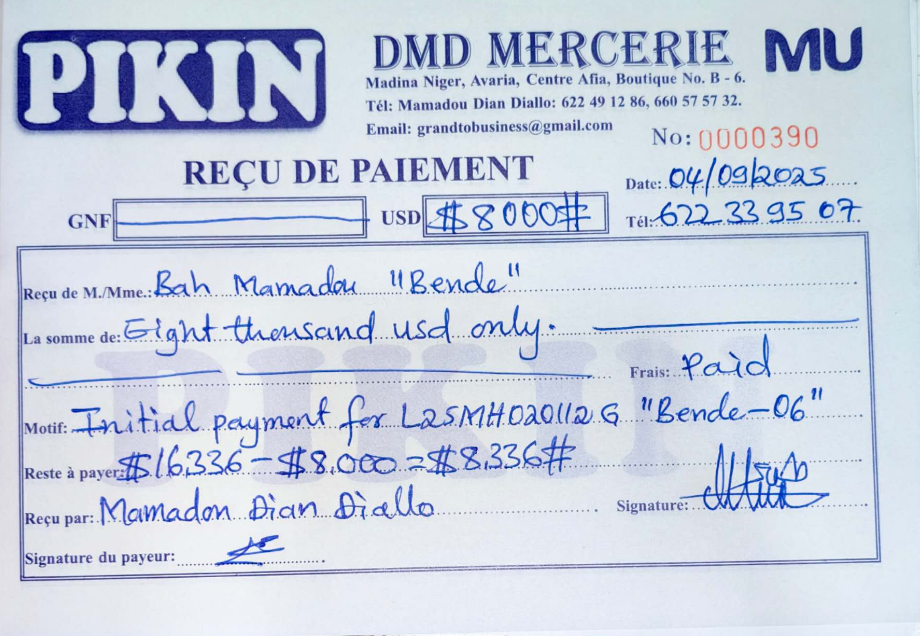 PIKIN
DMD MERCERIE
MU
Madina Niger, Avaria, Centre Afia, Boutique No. B - 6.
Tél: Mamadou Dian Diallo: 622 49 12 86, 660 57 57 32.
Email: grandtobusiness@gmail.com
No: 0000390
REÇU DE PAIEMENT
Date: 04/09/2025
GNF
USD $8000#
Tél: 622 33 95 07
Reçu de M./Mme.: Bah Mamadou "Bende"
La somme de: Eight thousand usd only.
Frais: Paid
Motif: Initial payment for L25MH020112G "Bende-06"
Reste à payer: $16,336 - $8,000 = $8,336#
Reçu par: Mamadou Dian Diallo
Signature:
Signature du payeur:
PIKIN